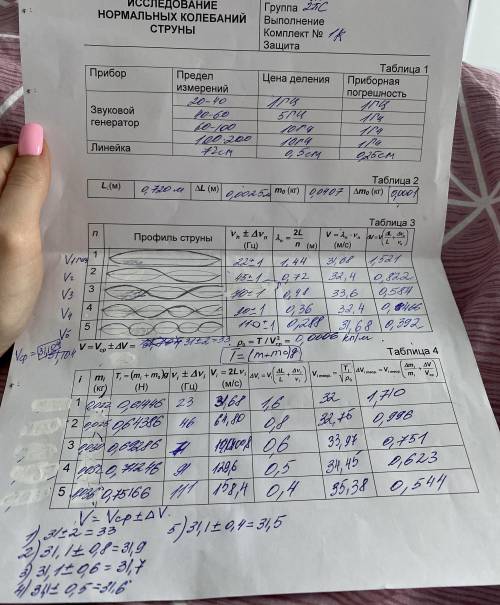 ИССЛЕДОВАНИЕ
НОРМАЛЬНЫХ КОЛЕБАНИЙ
СТРУНЫ
Группа 2ПС
Выполнение
Комплект № 1К
Защита
Таблица 1
Прибор Предел измерений Цена деления Приборная погрешность
Звуковой генератор
20-40 1Гц 1Гц
40-60 5Гц 1Гц
60-100 10Гц 1Гц
100-200 10Гц 1Гц
Линейка 72см 0,5см 0,25см
Таблица 2
L (м) 0,720м ΔL (м) 0,0025м m₀ (кг) 0,0407 Δm₀ (кг) 0,0001
Таблица 3
n Профиль струны νn ± Δνn (Гц) λn = 2L/n (м) V = λn · νn (м/с)
1 22±1 1,44 31,68 1,521
2 45±1 0,72 32,4 0,822
3 70±1 0,48 33,6 0,584
4 90±1 0,36 32,4 0,466
5 110±1 0,288 31,68 0,392
V = Vср ± ΔV = 31±2=33 ρ₀ = T / V²ср = 0,0006 кг/м
T=(m+m₀)g
Таблица 4
i mᵢ (кг) Tᵢ = (mᵢ + m₀)g (Н) νᵢ ± Δνᵢ (Гц) Vᵢ = 2Lνᵢ (м/с)
1 23 31,68 1,6 32 1,710
2 0,025 0,64386 46 64,80 0,8 32,76 0,998
3 0,69286 0,6 33,97 0,751
4 0,71246 91 129,6 0,5 34,45 0,623
5 0,75166 111 158,4 0,4 35,38 0,544
V = Vср ± ΔV
1) 31±2=33 5) 31,1±0,4=31,5
2) 31,1±0,8=31,9
3) 31,1±0,6=31,7
4) 31,1±0,5=31,6